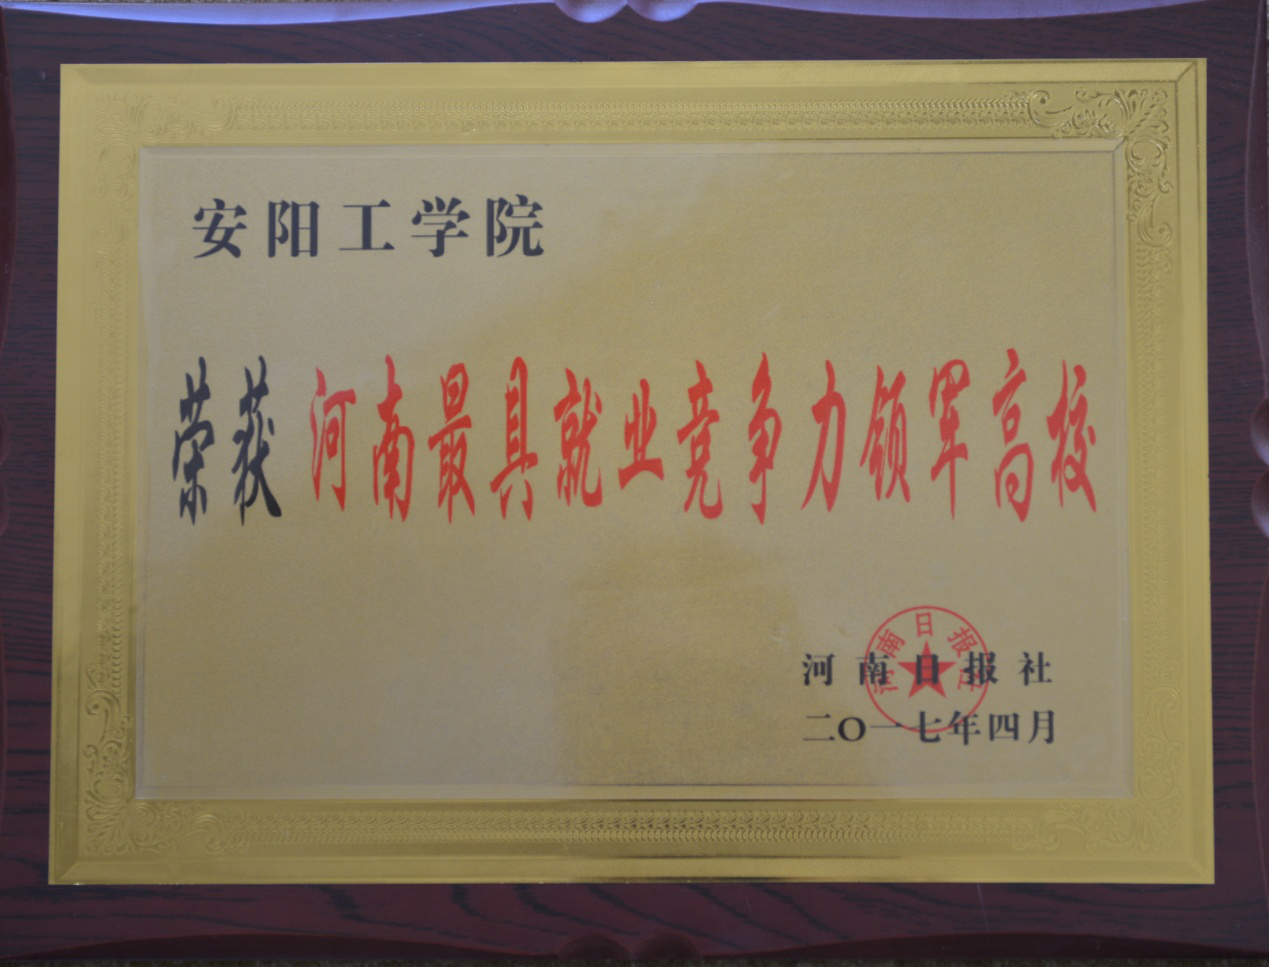 安阳工学院
荣获 河南最具就业竞争力领军高校
河南日报社
河南日报社
二〇一七年四月